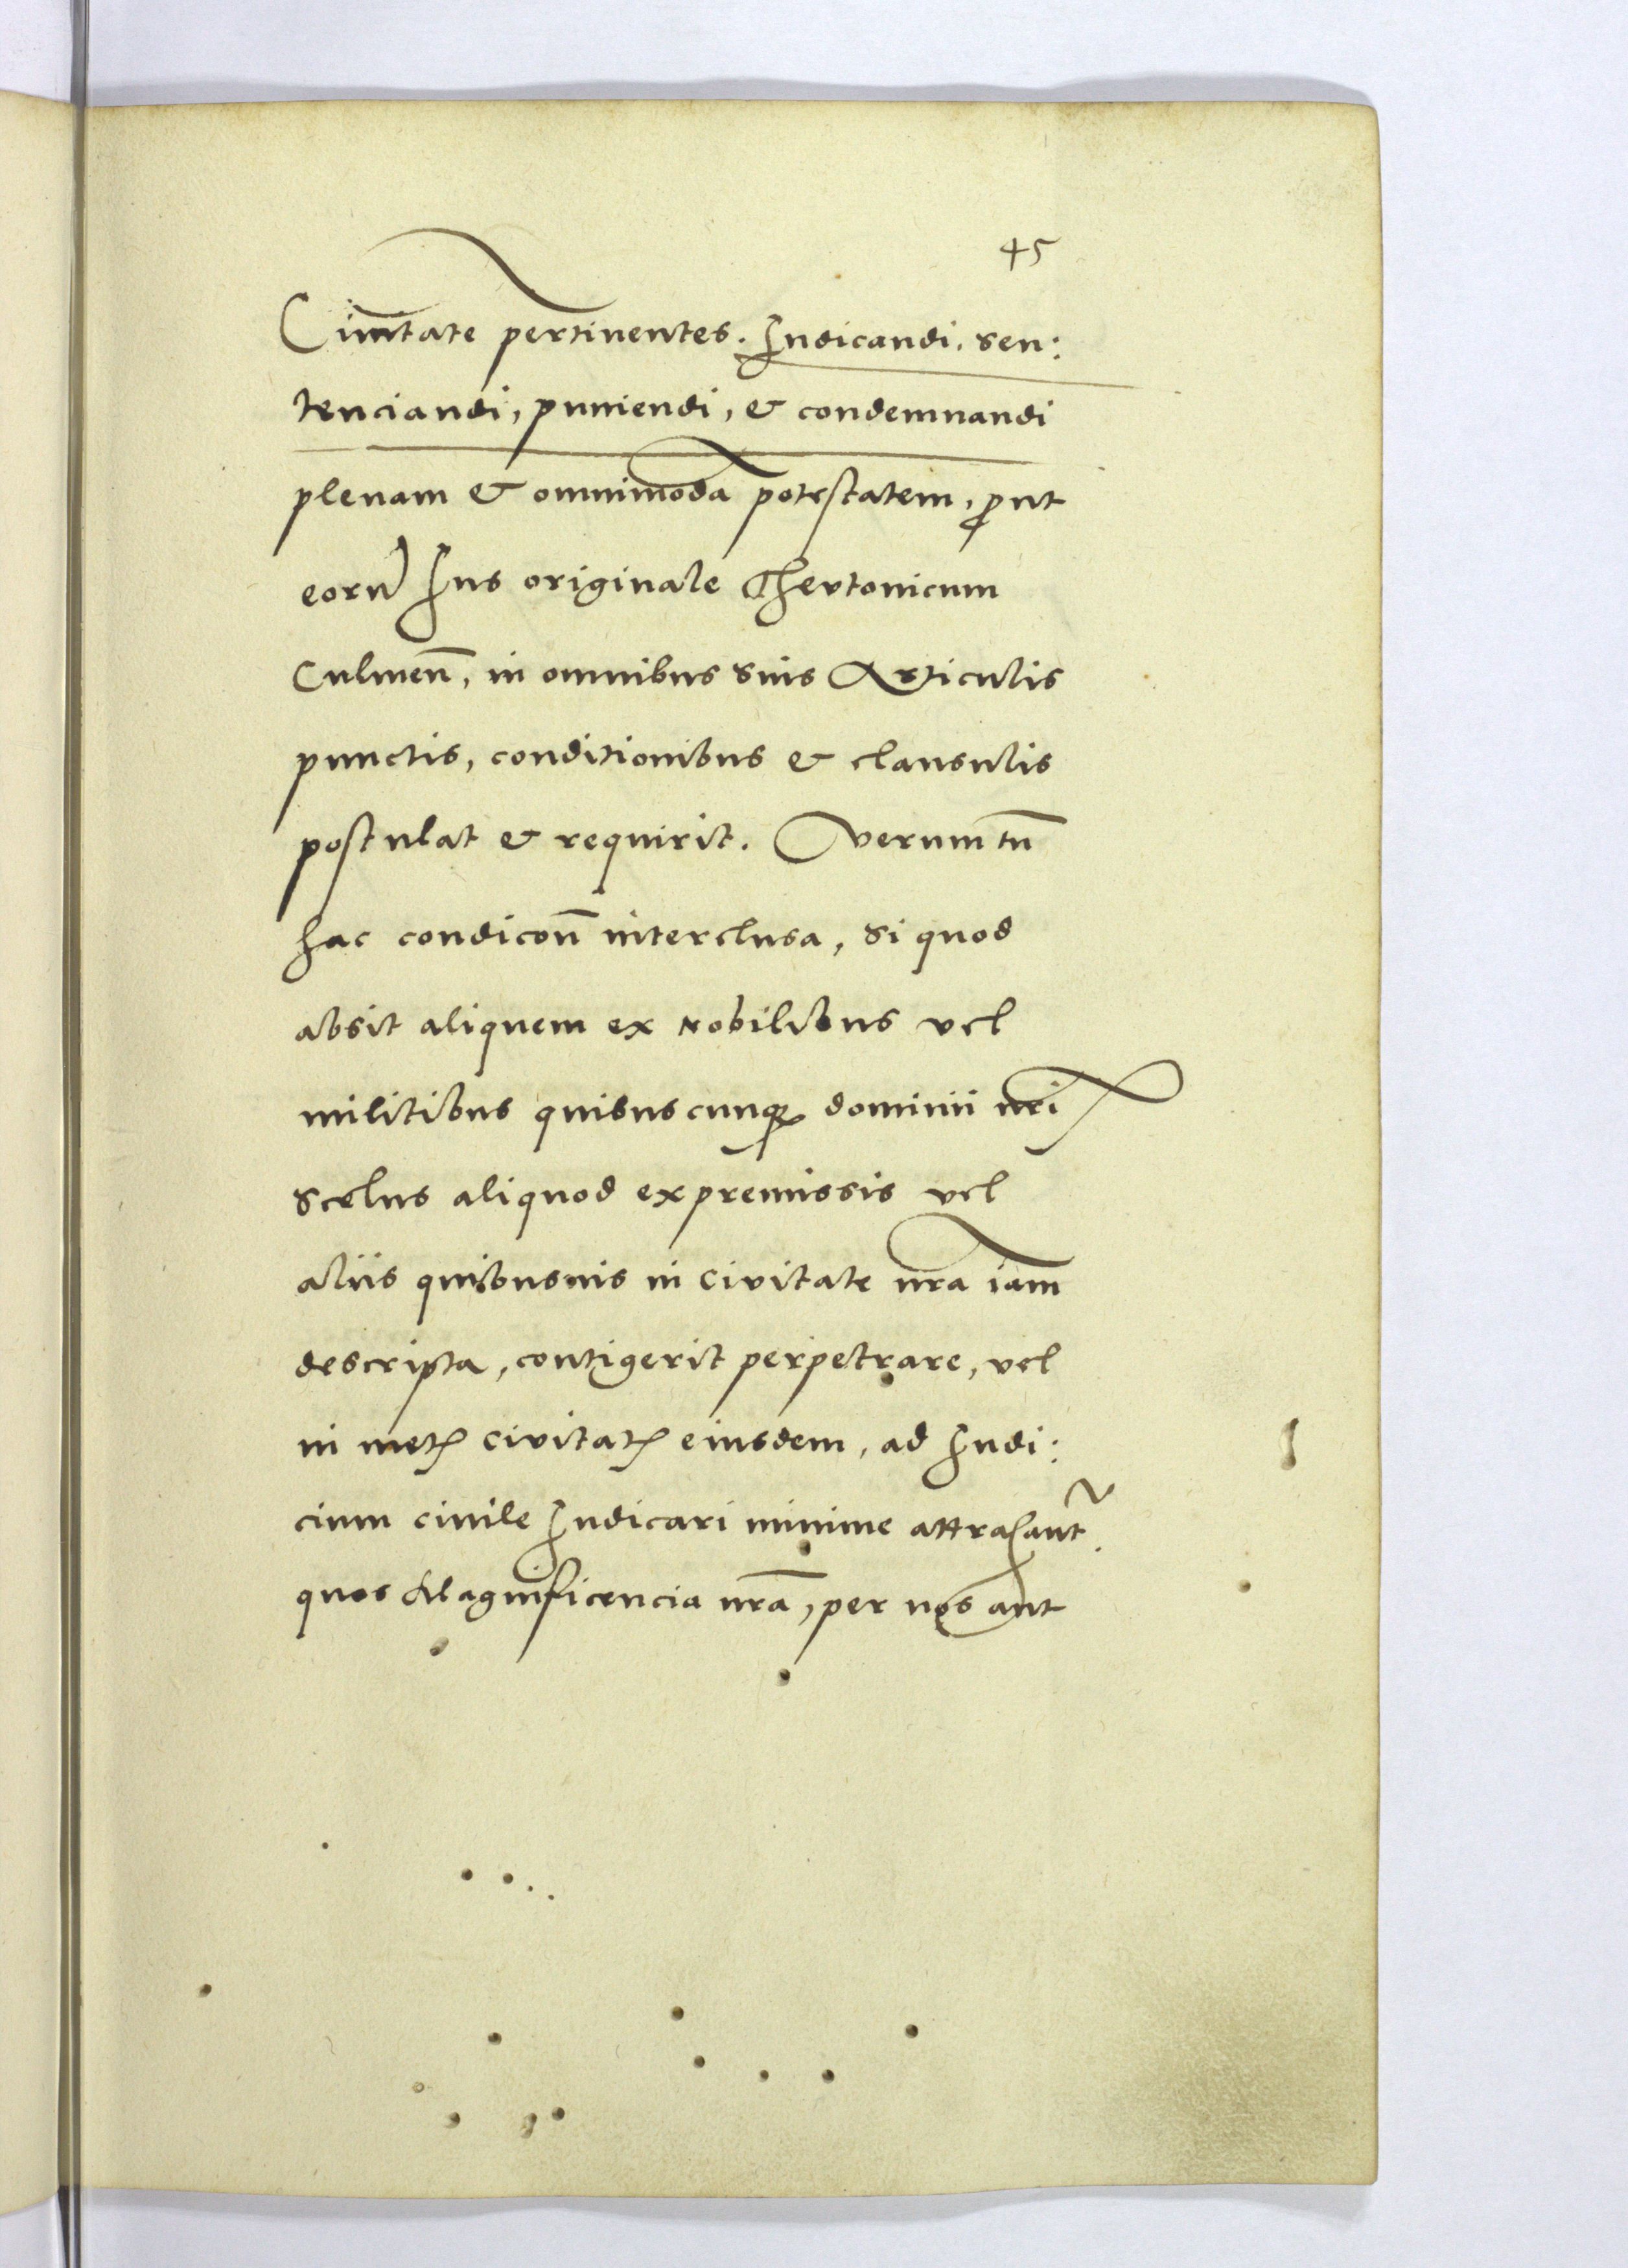 45
Ciuitate pertinentes. Iudicandi, sen:
tenciandi, puniendi, & condemnandi
plenam & omnimodã potestatem, ꝓut
eorũ Ius originale Thevtonicum
Culmeñ, in omnibus suis Articulis
punctis, conditionibus & clausulis
postulat & requirit. Verumtñ
hac condicoñ interclusa, Si quod
absit aliquem ex Nobilibus vel
militibus quibuscunqꝫ dominii nr̃i
Scelus aliquod ex premissis vel
aliis quibusuis in Civitate nr̃a iam
descripta, contigerit perpetrare, vel
in metꝭ civitatꝭ eiusdem, ad Iudi:
cium ciuile Iudicari minime attrahant̃.
quos Magnificencia nr̃a, per nos aut